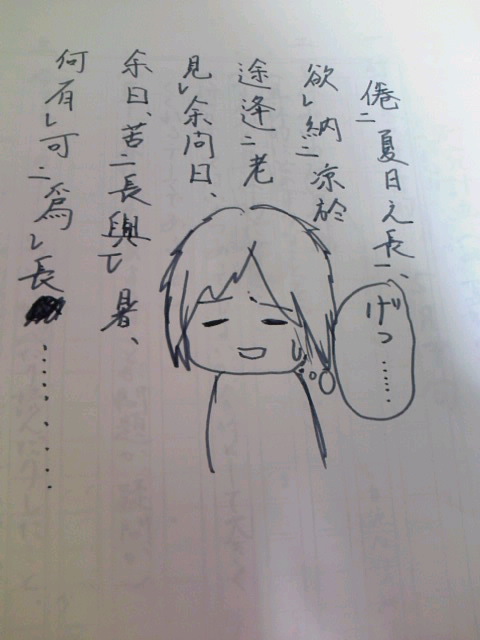 倦㆓夏日之長㆒、
欲㆑納㆓凉於
途逢㆓老
見㆑余問曰、
余曰、苦㆓長與㆑暑、
何有㆑可㆓為㆑長…………
げっ……